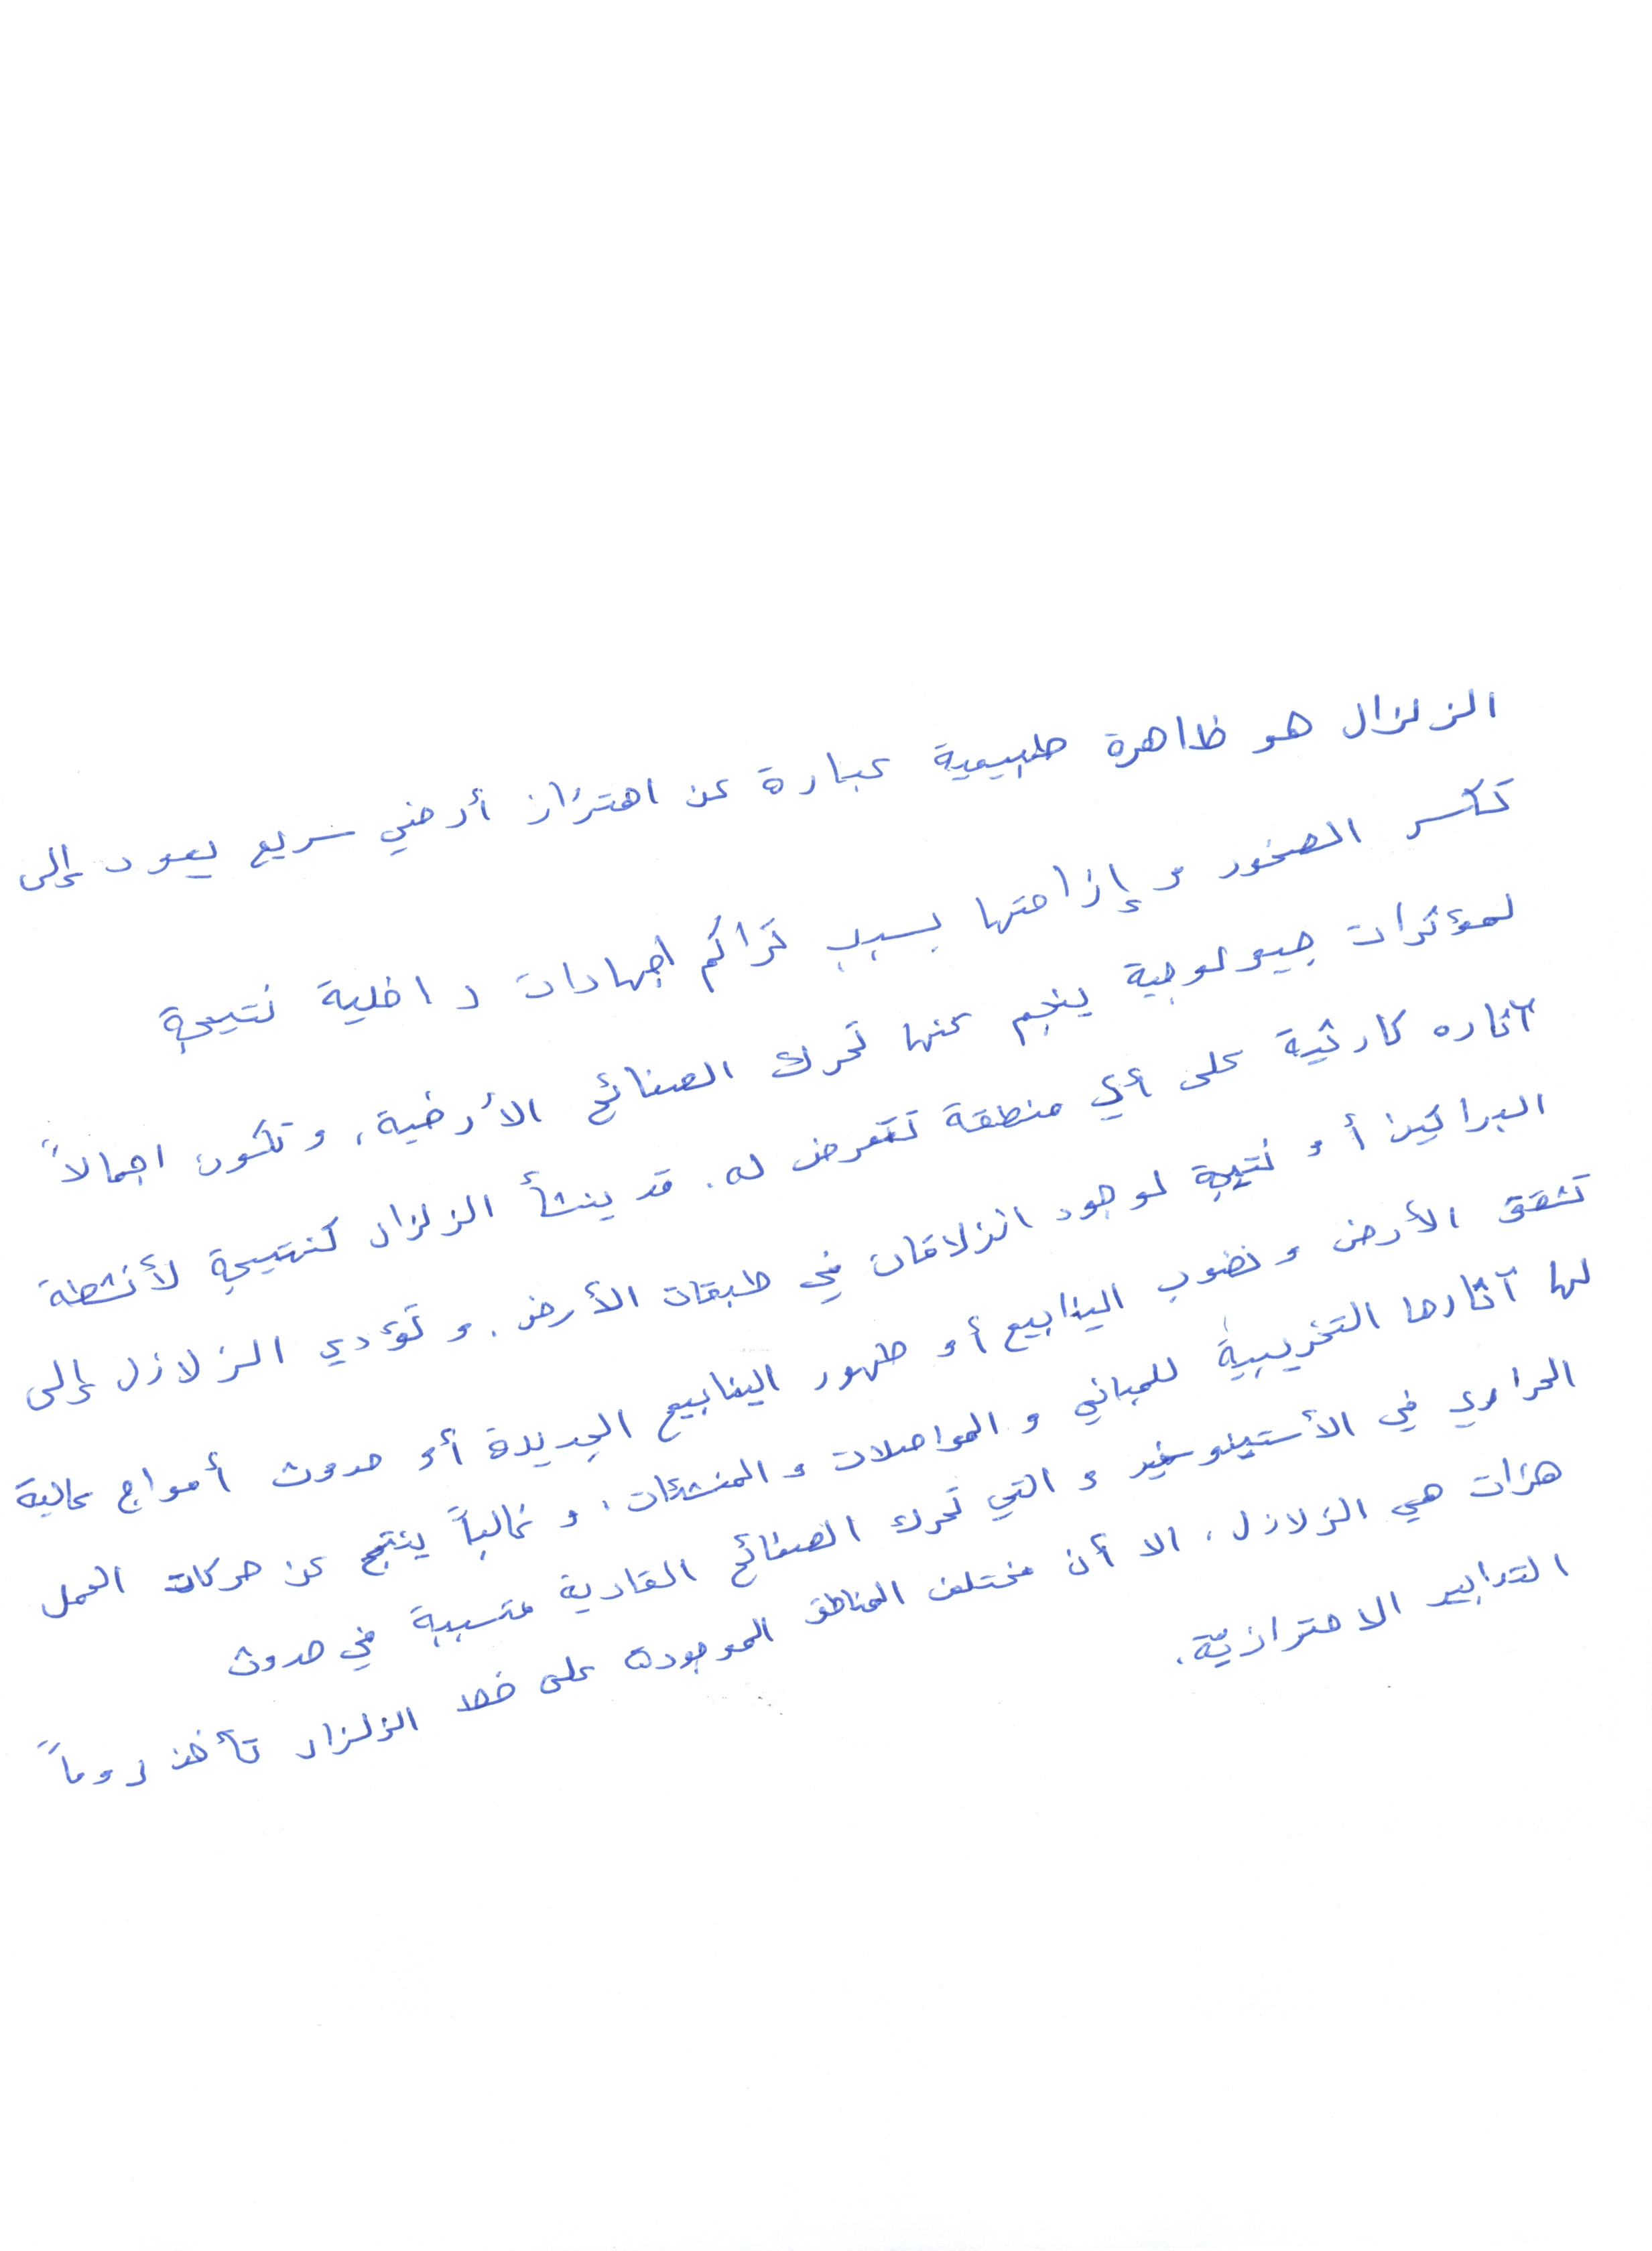 الزلزال هو ظاهرة طبيعية عبارة عن اهتزاز أرضي سريع يعود إلى
تكسر الصخور و إزاحتها بسبب تراكم اجهادات داخلية نتيجة
لمؤثرات جيولوجية ينجم عنها تحرك الصفائح الأرضية، و تكون اجمالاً
آثاره كارثية على أي منطقة تتعرض له. قد ينشأ الزلزال كنتيجة لأنشطة
البراكين أو نتيجة لوجود انزلاقات في طبقات الأرض. و تؤدي الزلازل إلى
تشقق الأرض و نضوب الينابيع أو ظهور الينابيع الجديدة أو حدوث أمواج عالية
لها آثارها التخريبية للمباني و المواصلات و المنشئات، و غالباً ينتج عن حركات الحمل
الحراري في الأستينوسفير و التي تحرك الصفائح القارية متسببة في حدوث
هزات هي الزلازل، الا أن مختلف المناطق الموجودة على خط الزلزال تأخذ دوماً
التدابير الاحترازيّة.